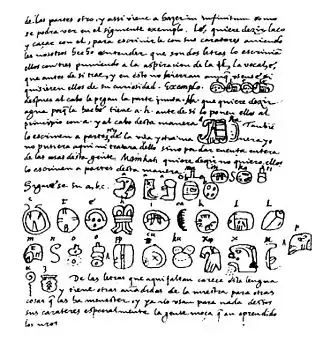 de las partes otro, y assi viene a hazer in infinitum como
se podra ver en el siguiente exemplo. Lé, quiere dezir laço
y caçar con el, para escrivirle con sus carateres aviendo
les nosotros hecho entender que son dos letras lo escrivian
ellos con tres puniendo a la aspiracion de la l, la vocal e,
que antes de si trae, y en esto no hierran
quisieren ellos de su curiosidad. Exemplo.
despues al cabo le pegan la parte junta. Ha que quiere dezir
agua porq la hache tiene a.h. ante de si lo ponen ellos al
principio con a. y al cabo desta manera Tambiē
lo escriven a partes y otra manera yo
no pusiera aqui ni tratara dello sino por dar cuenta entera
de las cosas desta gente. quiere dezir no quiero, ellos
lo escriven a partes desta manera
Siguese su a.b.c.
a a a b b c t
c t e h i ca k l l
m n o o pp p cu ku x x u
u z De las letras que aqui faltan carece esta lengua
y tiene otras añadidas de la nuestra para otras
cosas q las ha menester, y ya no usan para nada destos
sus carateres especialmente la gente moça q an aprendido
los nros